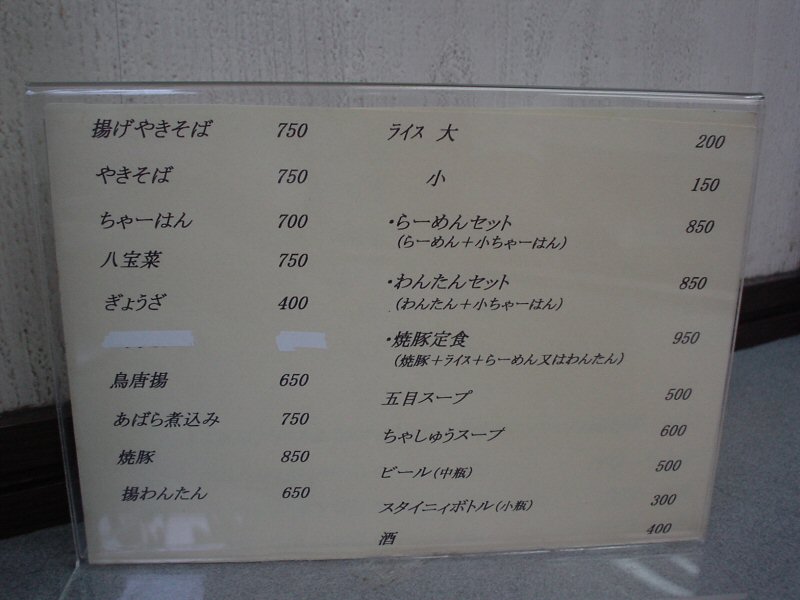 揚げやきそば 750
やきそば 750
ちゃーはん 700
八宝菜 750
ぎょうざ 400
鳥唐揚 650
あばら煮込み 750
焼豚 850
揚わんたん 650
ライス 大 200
小 150
・らーめんセット 850
(らーめん+小ちゃーはん)
・わんたんセット 850
(わんたん+小ちゃーはん)
・焼豚定食 950
(焼豚+ライス+らーめん又はわんたん)
五目スープ 500
ちゃしゅうスープ 600
ビール(中瓶) 500
スタイニィボトル(小瓶) 300
酒 400